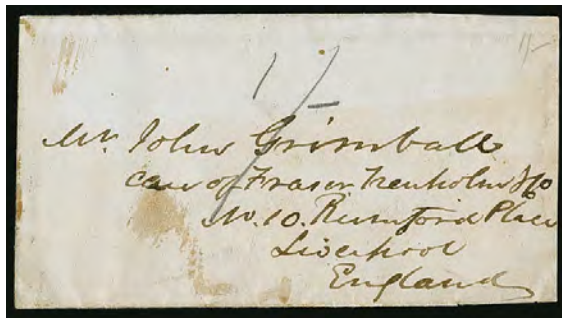 1/-
1/-
Mr. John Grimball
care of Fraser Trenholm & Co
No. 10. Rumford Place
Liverpool
England